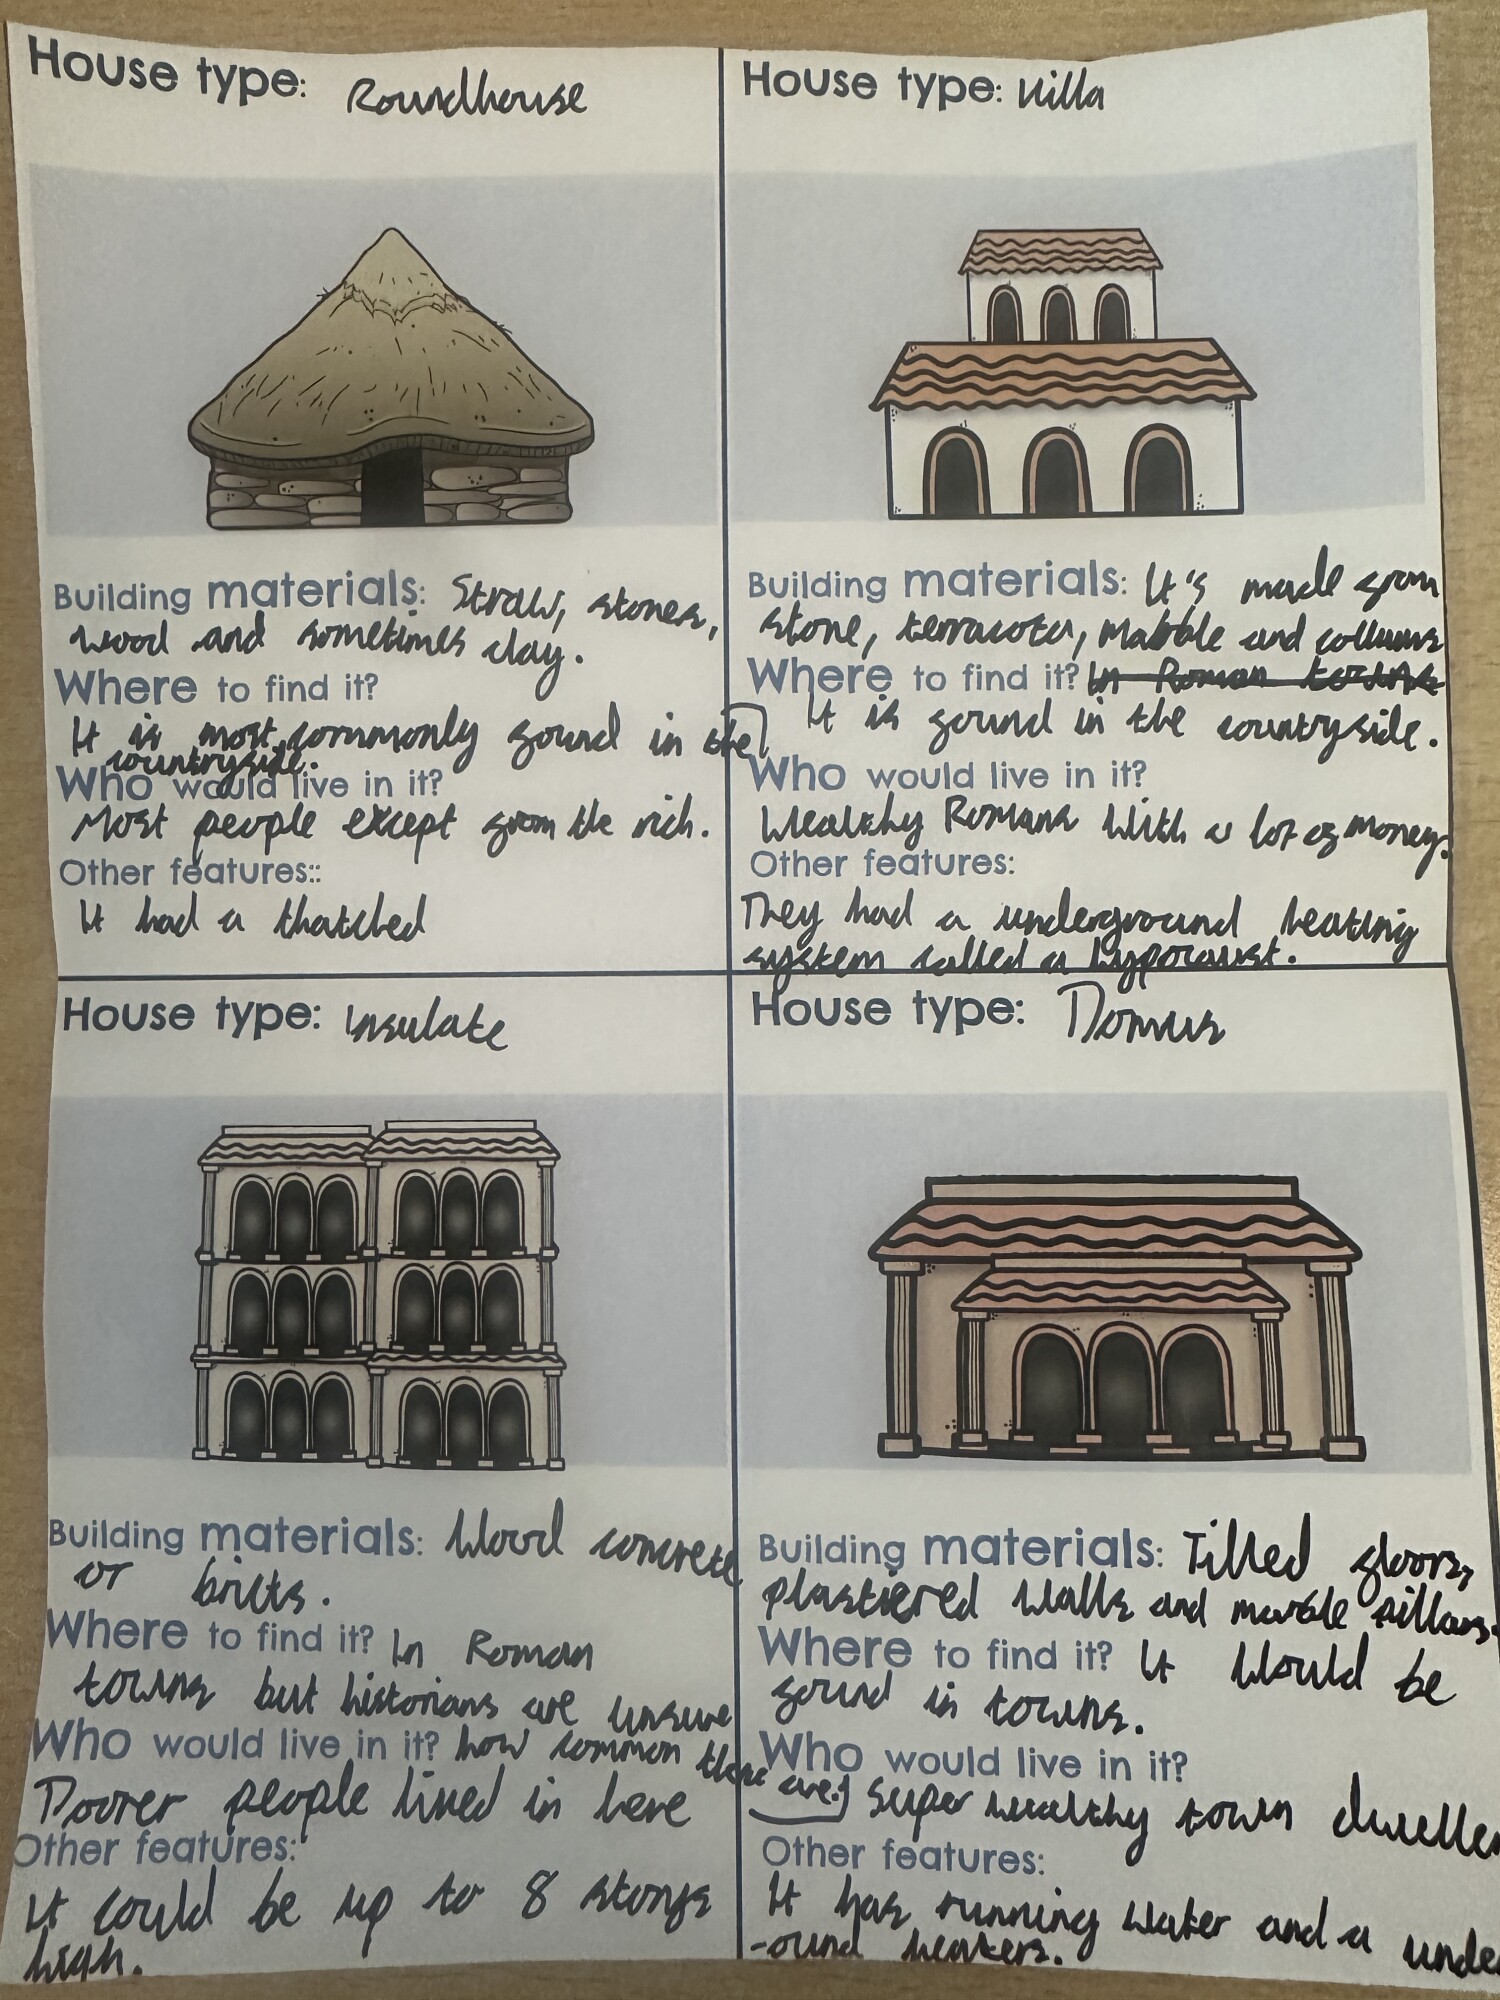 House type: Roundhouse
Building materials: Straw, stones,
wood and sometimes clay.
Where to find it?
It is most commonly found in the
countryside.
Who would live in it?
Most people except from the rich.
Other features::
It had a thatched
House type: Villa
Building materials: It's made from
stone, terracota, Marble and collums
Where to find it? In Roman towns
It is found in the countryside.
Who would live in it?
Wealthy Romans with a lot of money.
Other features:
They had a underground heating
system called a hypocaust.
House type: Insulate
Building materials: Wood concrete
or bricks.
Where to find it? In Roman
towns but historians are unsure
Who would live in it? how common there are.
Poorer people lived in here
Other features:
It could be up to 8 storys
high.
House type: Domus
Building materials: Tilled floors,
plastiered walls and marble pillars.
Where to find it? It would be
found in towns.
Who would live in it?
super wealthy town dweller
Other features:
It has running water and a unde
-ound heaters.